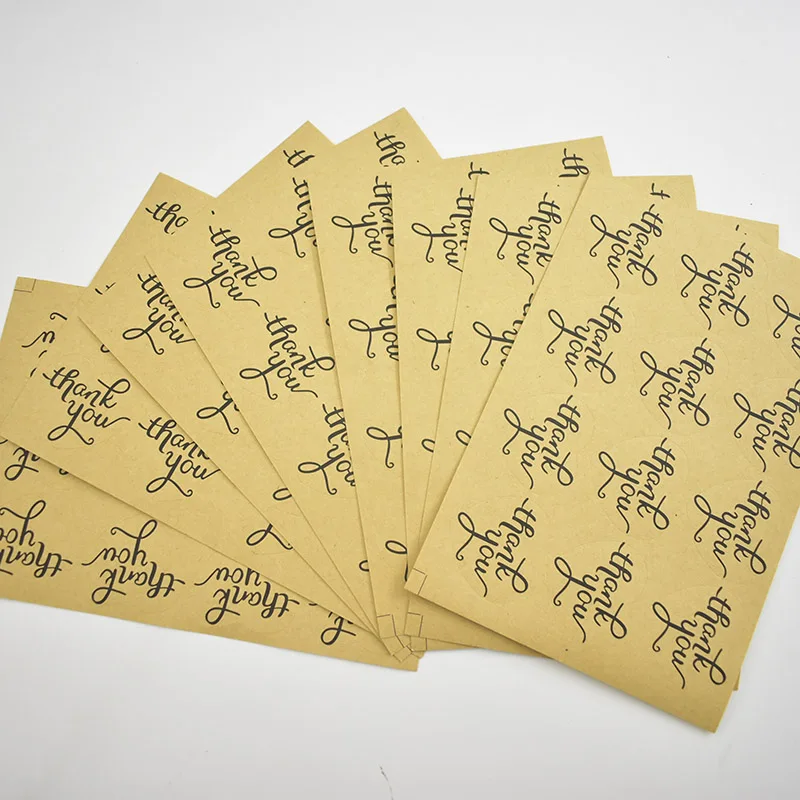 thank
you
thank
you
thank
you
thank
you
thank
you
thank
you
thank
you
thank
you
thank
you
thank
you
thank
you
you
thank
you
thank
you
thank
you
thank
you
thank
you
thank
you
thank
you
thank
you
thank
you